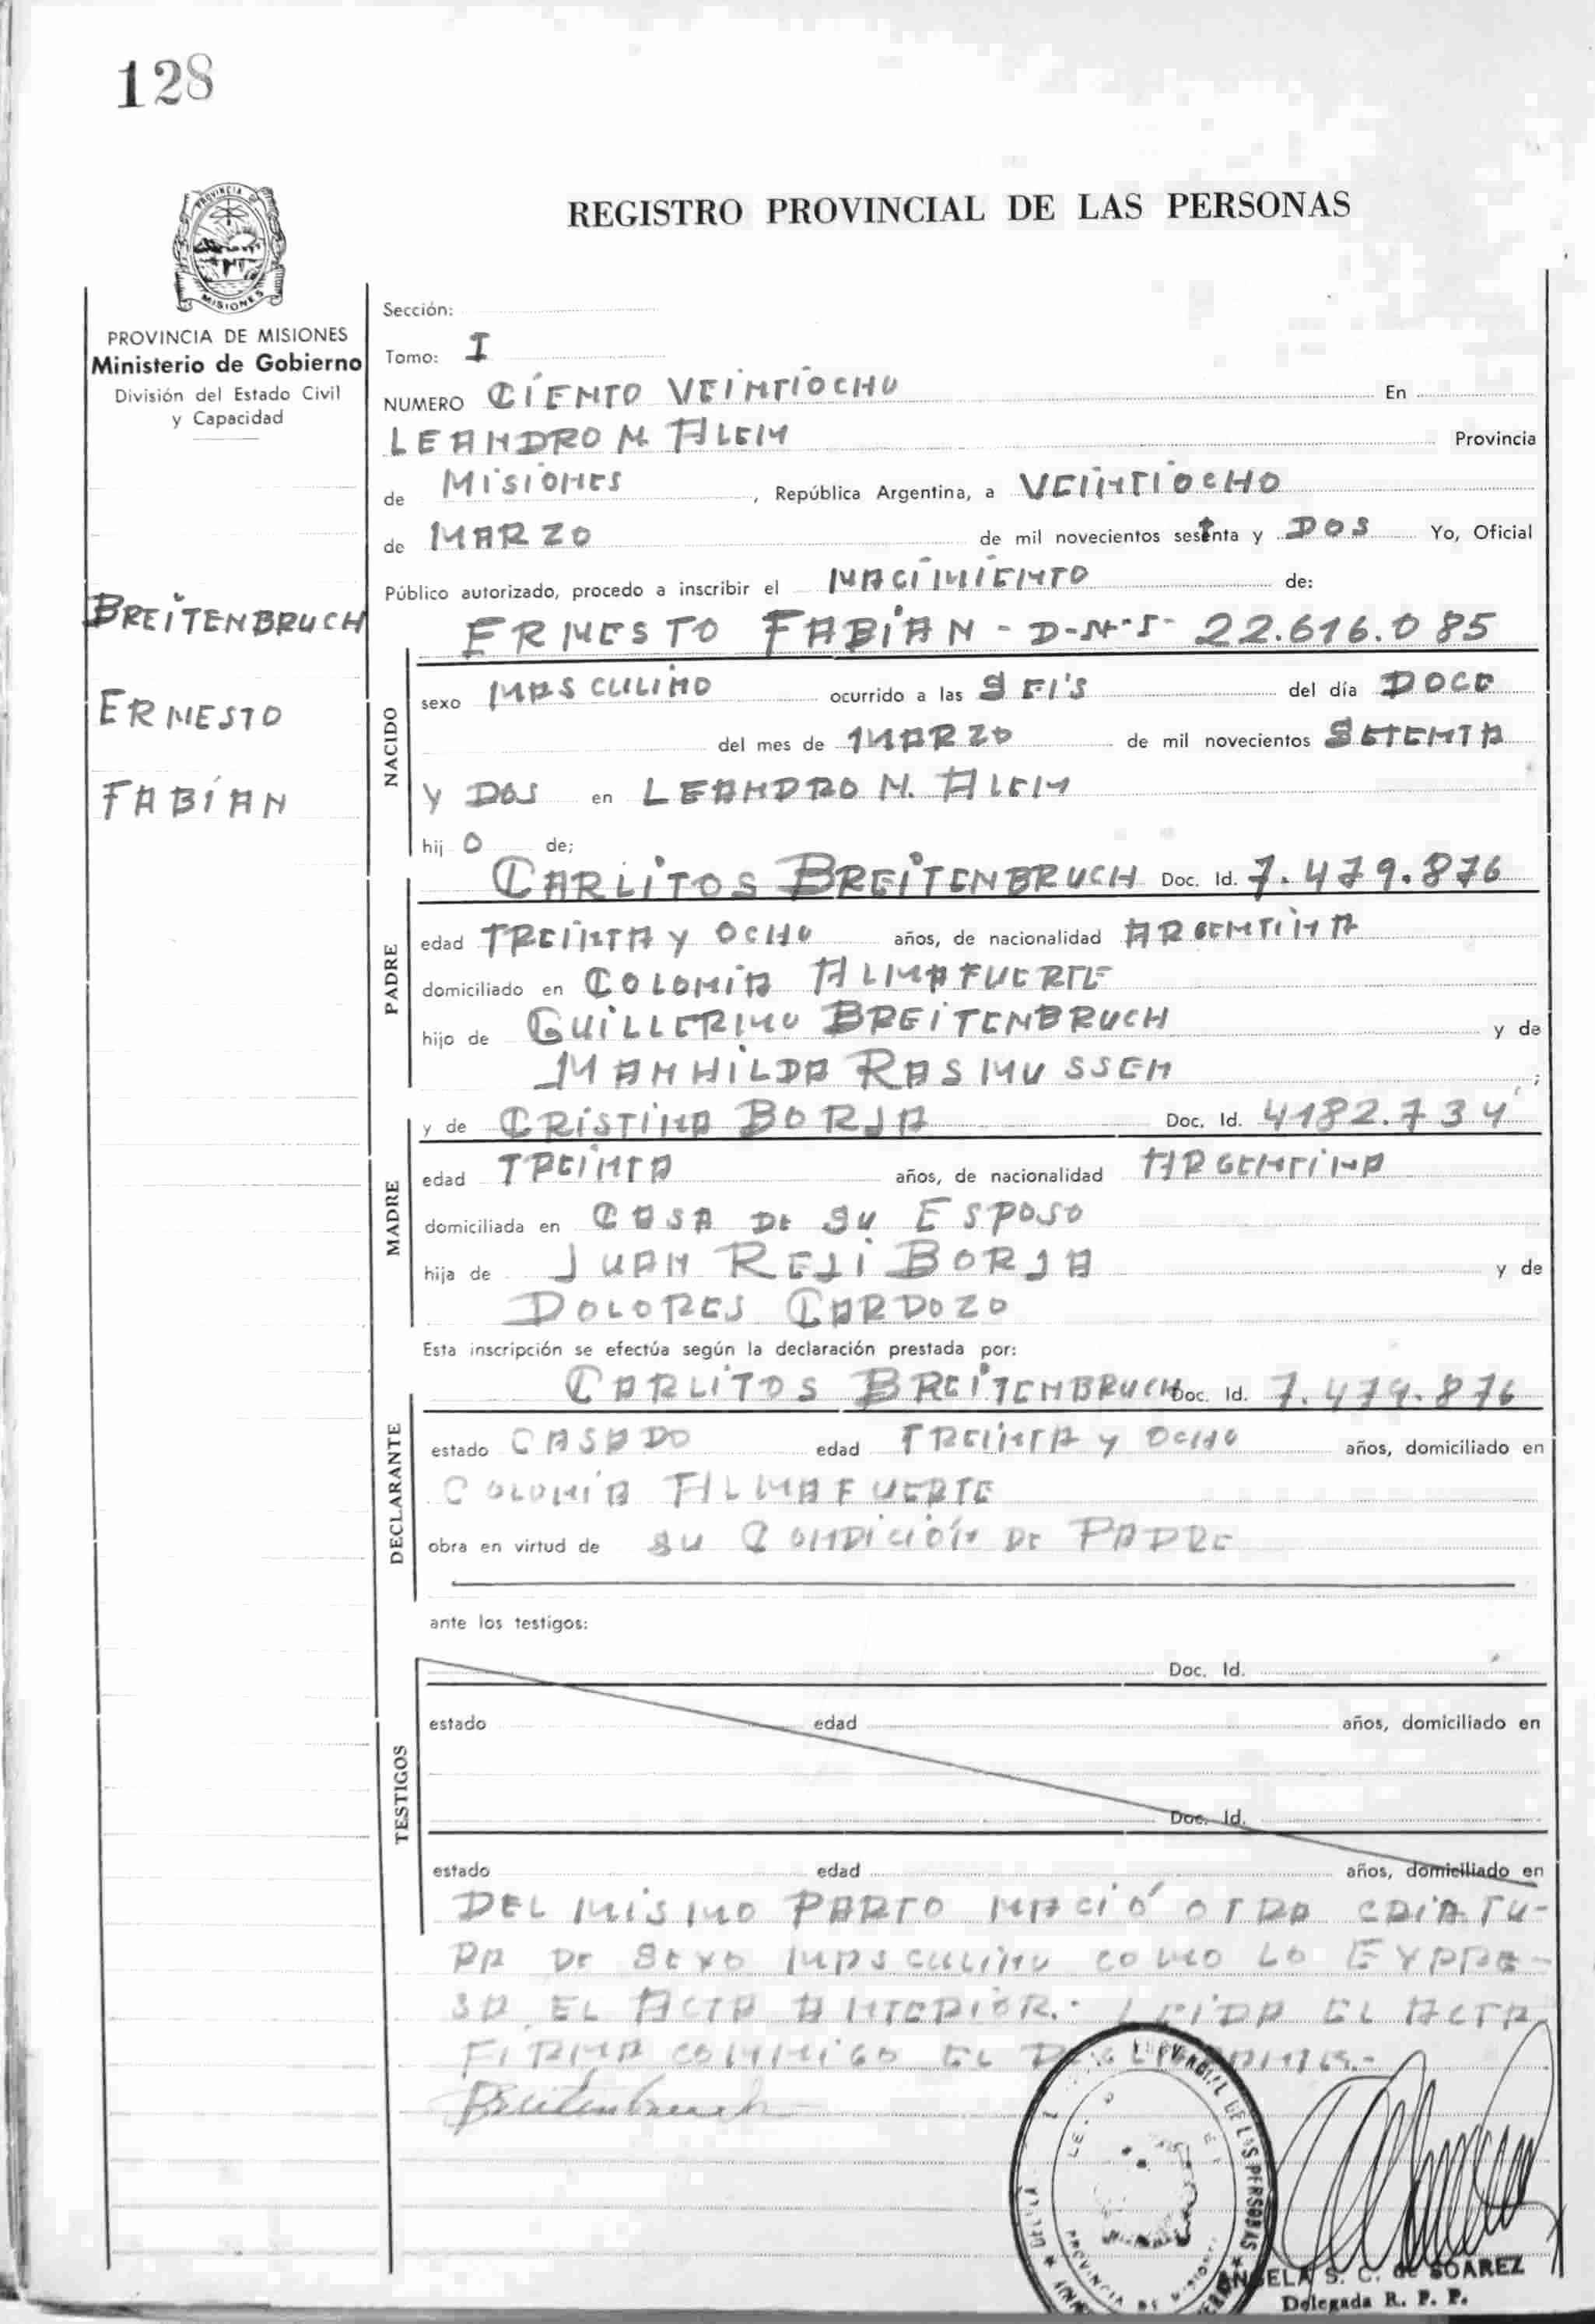 128
PROVINCIA
MISIONES
REGISTRO PROVINCIAL DE LAS PERSONAS
PROVINCIA DE MISIONES
Ministerio de Gobierno
División del Estado Civil
y Capacidad
BREITENBRUCH
ERNESTO
FABIÁN
Sección:
Tomo: I
NUMERO CIENTO VEINTIOCHO En
LEANDRO N. ALEM Provincia
de MISIONES, República Argentina, a VEINTIOCHO
de MARZO de mil novecientos setenta y DOS Yo, Oficial
Público autorizado, procedo a inscribir el NACIMIENTO de:
ERNESTO FABIÁN - D-N-I- 22.616.085
NACIDO
sexo MASCULINO ocurrido a las SEIS del día DOCE
del mes de MARZO de mil novecientos SETENTA
Y DOS en LEANDRO N. ALEM
hij O de;
PADRE
CARLITOS BREITENBRUCH Doc. Id. 7.479.876
edad TREINTA Y OCHO años, de nacionalidad ARGENTINA
domiciliado en COLONIA ALMAFUERTE
hijo de GUILLERMO BREITENBRUCH y de
MANHILDA RASMUSSEN;
MADRE
y de CRISTINA BORJA Doc. Id. 4182.734
edad TREINTA años, de nacionalidad ARGENTINA
domiciliada en CASA DE SU ESPOSO
hija de JUAN REJI BORJA y de
DOLORES CARDOZO
Esta inscripción se efectúa según la declaración prestada por:
DECLARANTE
CARLITOS BREITENBRUCH Doc. Id. 7.479.876
estado CASADO edad TREINTA Y OCHO años, domiciliado en
COLONIA ALMAFUERTE
obra en virtud de SU CONDICIÓN DE PADRE
ante los testigos:
TESTIGOS
Doc. Id.
estado edad años, domiciliado en
Doc. Id.
estado edad años, domiciliado en
DEL MISMO PARTO NACIÓ OTRA CRIATU-
RA DE SEXO MASCULINO COMO LO EXPRE-
SA EL ACTA ANTERIOR.- LEIDA EL ACTA
FIRMA CONMIGO EL
Breitenbruch
PROVINCIAL DE LAS PERSONAS
PROVINCIA DE MISIONES
ANGELA S. C. de SOAREZ
Delegada R. P. P.